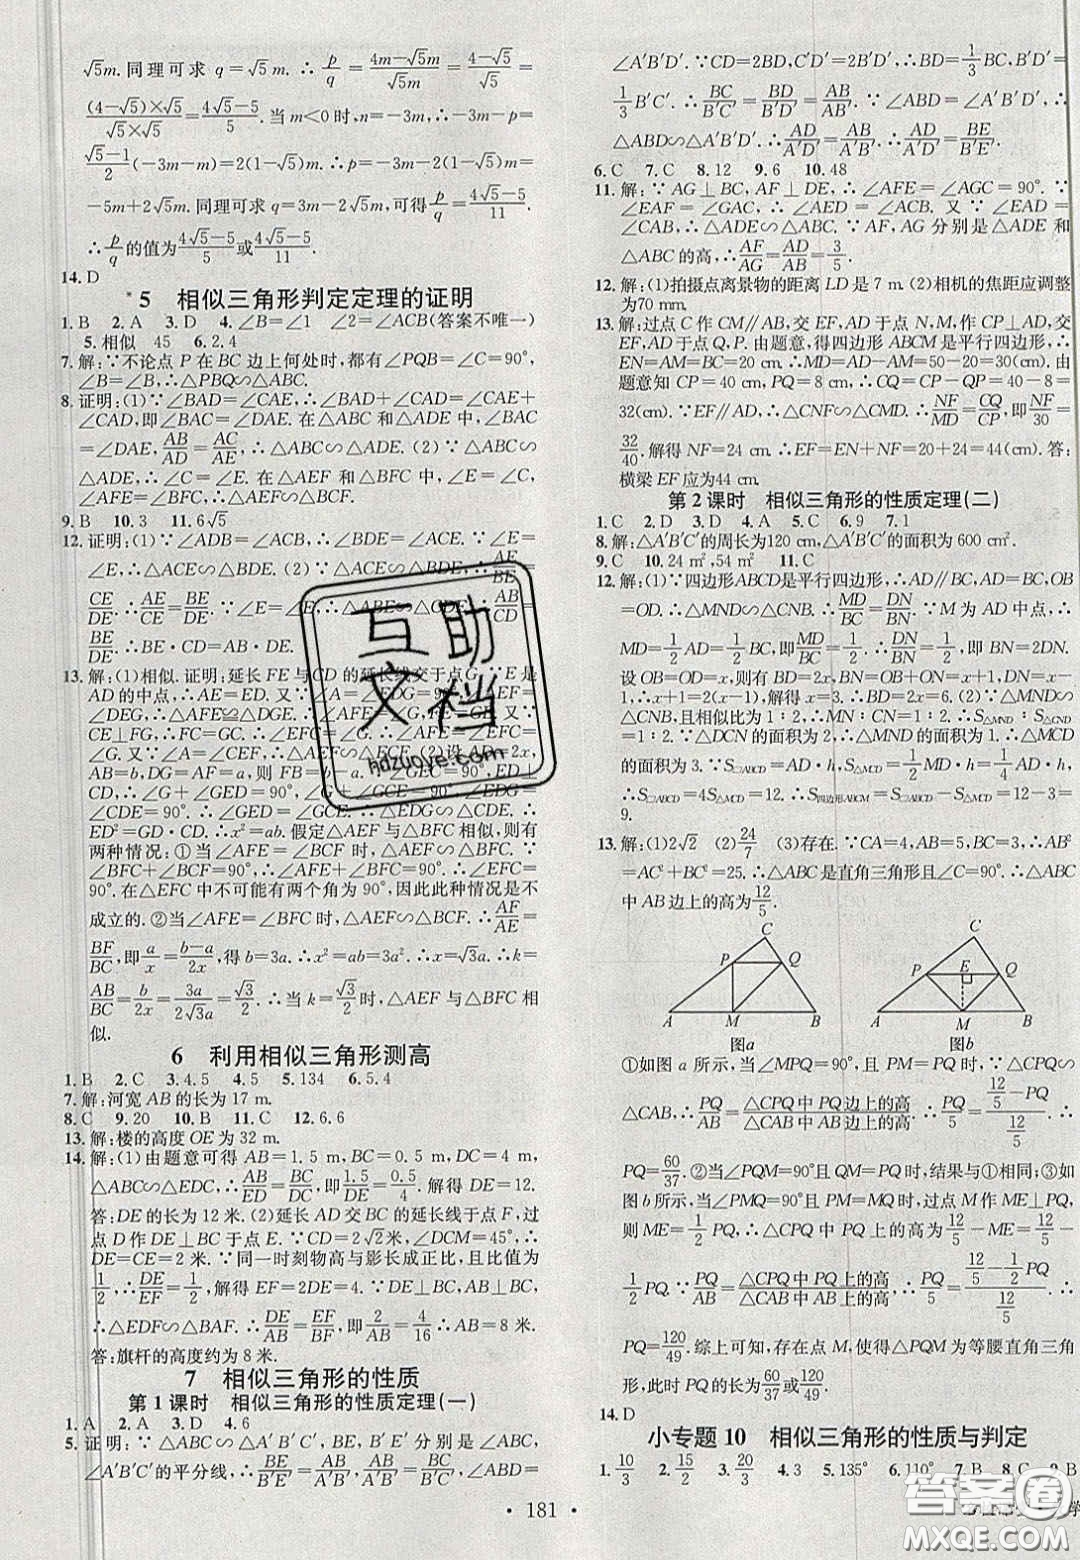 √5m.同理可求 q=√5m.∴p/q=(4m-√5m)/(√5m)=(4-√5)/√5=
((4-√5)×√5)/(√5×√5)=(4√5-5)/5.当 m<0时,n=-3m,∴-3m-p=
(√5-1)/2(-3m-m)=2(1-√5)m.∴p=-3m-2(1-√5)m=
-5m+2√5m.同理可求 q=-3m-2√5m,可得p/q=(4√5-5)/11.
∴p/q的值为(4√5-5)/5或(4√5-5)/11.
14.D
5 相似三角形判定定理的证明
1.B 2.A 3.D 4.∠B=∠1 ∠2=∠ACB(答案不唯一)
5.相似 45 6.2.4
7.解:∵不论点 P 在 BC 边上何处时,都有∠PQB=∠C=90°,
∠B=∠B,∴△PBQ∽△ABC.
8.证明:(1)∵∠BAD=∠CAE,∴∠BAD+∠CAD=∠CAE+
∠CAD,即∠BAC=∠DAE.在△ABC 和△ADE 中,∠BAC
=∠DAE,AB/AD=AC/AE,∴△ABC∽△ADE.(2)∵△ABC∽
△ADE,∴∠C=∠E.在△AEF 和△BFC 中,∠C=∠E,
∠AFE=∠BFC,∴△AEF∽△BFC.
9.B 10.3 11.6√5
12.证明:(1)∵∠ADB=∠ACB,∴∠BDE=∠ACE.又∵∠E=
∠E,∴△ACE∽△BDE.(2)∵△ACE∽△BDE,∴AE/BE=
CE/DE.∴AE/CE=BE/DE.∵∠E=∠E,∴△ABE∽△CDE.∴AB/CD=
BE/DE.∴BE·CD=AB·DE.
13.解:(1)相似.证明:延长 FE 与 CD 的延长线交于点G.∵E 是
AD 的中点,∴AE=ED.又∵∠A=∠EDG=90°,∠AEF=
∠DEG,∴△AFE≌△EDG.∴∠AFE=∠G,FE=GE.又∵
CE⊥FG,∴FC=GC.∴∠EFC=∠G.又∵∠AFE=∠EFC=
∠G.又∵∠A=∠FEC,∴△AEF∽△ECF.(2)设 AD=2x,
AB=b,DG=AF=a,则 FB=b-a.∵∠GEC=90°,ED⊥
CD,∴∠G+∠GED=90°,∠G+∠GCE=90°.∴∠GED=
∠GCE,∠GED=∠EDC=90°.∴△EDG∽△CDE.∴
ED²=GD·CD.∴x²=ab.假定△AEF与△BFC 相似,则有
两种情况:①当∠AFE=∠BCF时,∠AFE=∠EFC.∵
∠BFC+∠BCF=90°,∴∠AFE+∠BFC=90°.∴∠EFC=
90°.在△EFC 中不可能有两个角为90°,因此此种情况是不
成立的.②当∠AFE=∠BFC 时,△AEF∽△BCF.∴AF/AE=
BF/BC,即a/x=(b-a)/2x,得 b=3a.∴x²=3a².∴x=√3a.∴k=
AB/BC=b/2x=3a/(2√3a)=√3/2.∴当 k=√3/2时,△AEF 与△BFC 相
似.
6 利用相似三角形测高
1.B 2.C 3.4.5 4.5 5.134 6.5.4
7.解:河宽 AB 的长为 17 m.
8.C 9.20 10.B 11.C 12.6.6
13.解:楼的高度 OE 为 32 m.
14.解:(1)由题意可得 AB=1.5 m,BC=0.5 m,DC=4 m,
△ABC∽△EDC,则AB/ED=BC/DC,即1.5/DE=0.5/4.解得 DE=12.
答:DE的长为 12 米.(2)延长 AD 交 BC 的延长线于点 F,过
点 D 作 DE⊥BC 于点 E.∵CD=2√2 m,∠DCM=45°,∴
DE=CE=2 米.∵同一时刻物高与影长成正比,且比值为
1/2,∴DE/EF=1/2,解得 EF=2DE=4.∵DE⊥BC,AB⊥BC,
∴△EDF∽△ABF.∴DE/AB=EF/BF,即2/AB=4/16.∴AB=8 米.
答:旗杆的高度约为 8 米.
7 相似三角形的性质
第 1 课时 相似三角形的性质定理(一)
1.A 2.A 3.D 4.6
5.证明:∵△ABC∽△A′B′C′,BE,B′E′分别是∠ABC,
∠A′B′C′的平分线,∴BE/B′E′=AB/A′B′,AB/A′B′=BC/B′C′,∠ABD=
∠A′B′D′.∵CD=2BD,C′D′=2B′D′,∴BD=1/3BC,B′D′=
1/3B′C′.∴BC/B′C′=BD/B′D′=AB/A′B′.∵∠ABD=∠A′B′D′,∴
△ABD∽△A′B′D′.∴AD/A′D′=AB/A′B′.∴AD/A′D′=BE/B′E′.
6.C 7.C 8.12 9.6 10.48
11.解:∵AG⊥BC,AF⊥DE,∴∠AFE=∠AGC=90°.∵
∠EAF=∠GAC,∴∠AED=∠ACB.又∵∠EAD=
∠CAB,∴△ADE∽△ABC.∵AF,AG 分别是△ADE
和△ABC 的高,∴AF/AG=AD/AB=3/5.
12.解:(1)拍摄点离景物的距离 LD 是 7 m.(2)相机的焦距应调整
为70 mm.
13.解:过点 C 作 CM∥AB,交 EF,AD 于点 N,M,作 CP⊥AD,
交 EF,AD 于点 Q,P.由题意,得四边形 ABCM 是平行四边形,∴
EN=AM=BC=20 cm.∴MD=AD-AM=50-20=30(cm).由
题意知 CP=40 cm,PQ=8 cm,∴CQ=CP-QP=40-8=
32(cm).∵EF∥AD,∴△CNF∽△CMD.∴NF/MD=CQ/CP,即NF/30=
32/40.解得 NF=24 cm.∴EF=EN+NF=20+24=44(cm).答:
横梁 EF 应为44 cm.
第 2 课时 相似三角形的性质定理(二)
1.C 2.D 3.D 4.A 5.C 6.9 7.1
8.解:△A′B′C′的周长为120 cm,△A′B′C′的面积为 600 cm².
9.C 10.24 m²,54 m² 11.C
12.解:(1)∵四边形ABCD是平行四边形,∴AD∥BC,AD=BC,OB
=OD.∴△MND∽△CNB.∴MD/BC=DN/BN.∵M 为 AD 中点,∴
MD=1/2AD=1/2BC,即MD/BC=1/2.∴DN/BN=1/2,即 BN=2DN.
设 OB=OD=x,则有 BD=2x,BN=OB+ON=x+1,DN=x-
1.∴x+1=2(x-1),解得 x=3.∴BD=2x=6.(2)∵△MND∽
△CNB.且相似比为 1∶2,∴MN∶CN=1∶2.∴S△MND∶S△CND
=1∶2.∵△DCN 的面积为 2,∴△MND 的面积为 1.∴△MCD
的面积为 3.∵S▱ABCD=AD·h,S△MCD=1/2MD·h=1/4AD·h,
∴S▱ABCD=4S△MCD=12.∴S四边形ABCM=S▱ABCD-S△MCD=12-3=
9.
13.解:(1)2√2 (2)24/7 (3)存在.∵CA=4,AB=5,BC=3,∴AB²
=AC²+BC²=25.∴△ABC是直角三角形且∠C=90°.∴△ABC
中 AB 边上的高为12/5.
C P Q A M B 图a
C P E Q A M B 图b
①如图 a 所示,当∠MPQ=90°,且 PM=PQ 时,∵△CPQ∽
△CAB,∴PQ/AB=△CPQ 中 PQ 边上的高/△CAB 中 AB 边上的高.∴PQ/5=(12/5-PQ)/(12/5).∴
PQ=60/37.②当∠PQM=90°且 QM=PQ 时,结果与①相同;③如
图 b 所示,当∠PMQ=90°且 PM=MQ 时,过点 M 作 ME⊥PQ,
则 ME=1/2PQ,∴△CPQ 中 PQ 上的高为12/5-ME=12/5-
1/2PQ.∵PQ/AB=△CPQ 中 PQ 上的高/△CAB 中 AB 上的高,∴PQ/5=(12/5-1/2PQ)/(12/5).∴
PQ=120/49.综上可知,存在点 M,使得△PQM 为等腰直角三角
形,此时 PQ 的长为60/37或120/49.
14.D
小专题 10 相似三角形的性质与判定
1.10/3 2.15/2 3.20/3 4.3 5.135° 6.110° 7.B 8.C 9.B
· 181 ·
互助文档
hdzuoye.com
答案圈
MXQE.COM